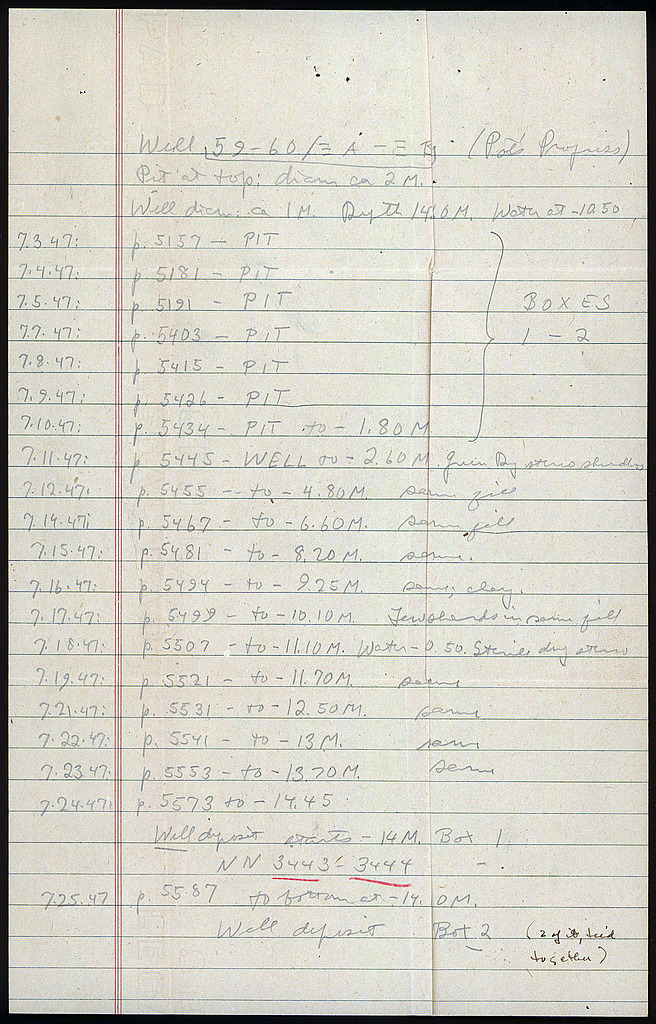 Well 59-60/Ξ Α - Ξ (Pot's Progress)
Pit at top: diam ca 2 M.
Well diam: ca 1 M. Depth 14. 0 M. Water at -10.50
7.3.47: p. 5157 - PIT
7.4.47: p. 5181 - PIT
7.5.47: p. 5191 - PIT
BOXES
1 - 2
7.7.47: p. 5403 - PIT
7.8.47: p. 5415 - PIT
7.9.47: p. 5426 - PIT
7.10.47: p. 5434 - PIT to - 1.80 M
7.11.47: p. 5445 - WELL to - 2.60 M.
7.12.47: p. 5455 -- to - 4.80 M. same fill
7.14.47: p. 5467 - to - 6.60 M. same fill
7.15.47: p. 5481 - to - 8.20 M. same.
7.16.47: p. 5494 - to - 9.25 M. same; clay.
7.17.47: p. 5499 - to - 10.10 M. Few sherds in same fill
7.18.47: p. 5507 - to - 11.10 M. Water - 0.50. Sterile dug stereo
7.19.47: p. 5521 - to - 11.70 M. same
7.21.47: p. 5531 - to - 12.50 M. same
7.22.47: p. 5541 - to - 13 M. same
7.23.47: p. 5553 - to - 13.70 M. same
7.24.47: p. 5573 to - 14.45
Well deposit starts - 14 M. Box 1.
NN 3443 - 3444 -
7.25.47 p. 5587 to bottom at - 14. 0 M.
Well deposit Box 2 (2 of it, tied
together)